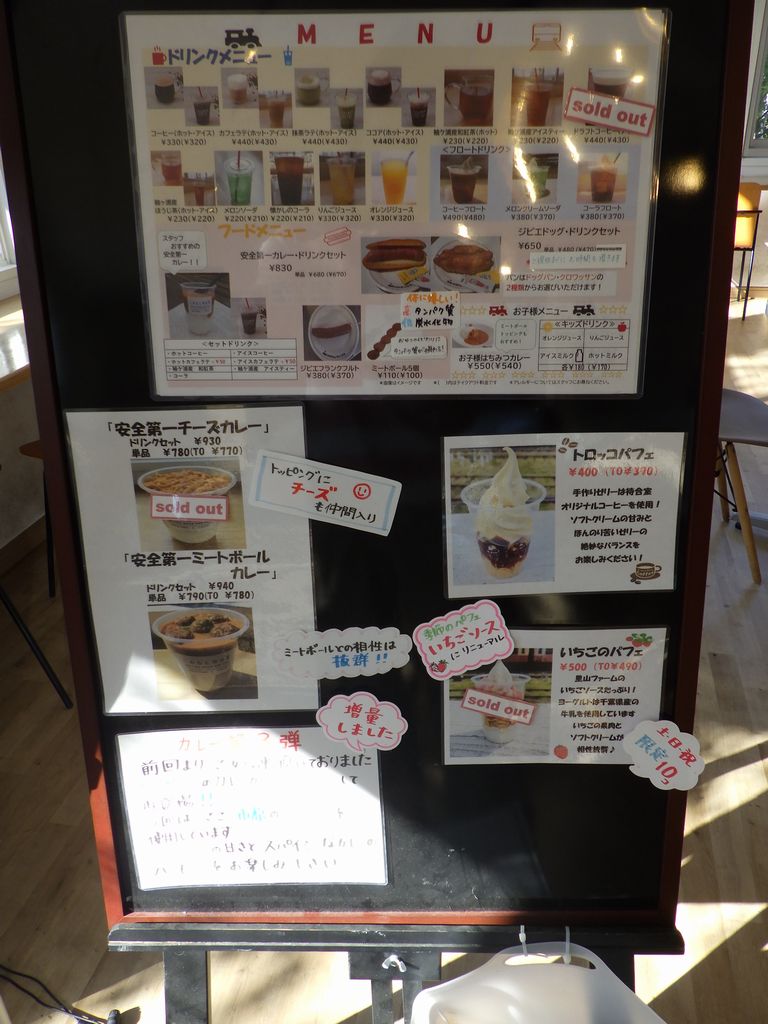 MENU
ドリンクメニュー
sold out
コーヒー(ホット・アイス)
¥330(¥320)
カフェラテ(ホット・アイス)
¥440(¥430)
抹茶ラテ(ホット・アイス)
¥440(¥430)
ココア(ホット・アイス)
¥440(¥430)
袖ケ浦産和紅茶(ホット)
¥230(¥220)
ドラフトコーヒー(アイス)
<フロートドリンク>
袖ケ浦産
ほうじ茶(ホット・アイス)
¥230(¥220)
メロンソーダ
¥220(¥210)
懐かしのコーラ
¥220(¥210)
りんごジュース
¥330(¥320)
オレンジジュース
¥330(¥320)
コーヒーフロート
¥490(¥480)
メロンクリームソーダ
¥380(¥370)
コーラフロート
¥380(¥370)
フードメニュー
スタッフ
おすすめの
安全第一
カレー!!
安全第一カレー・ドリンクセット
¥830
単品 ¥680(¥670)
ジビエドッグ・ドリンクセット
¥650
単品 ¥480(¥470)
パンはドッグパン・クロワッサンの
2種類からお選びいただけます!
体に嬉しい!
高 タンパク質
低 炭水化物
<セットドリンク>
・ホットコーヒー
・アイスコーヒー
・ホットカフェラテ+¥50
・アイスカフェラテ+¥50
・袖ケ浦産 和紅茶
・袖ケ浦産 アイスティー
・コーラ
ジビエフランクフルト
¥380(¥370)
ミートボール5個
¥110(¥100)
お子様メニュー
ミートボール
トッピングも
おすすめ!
お子様はちみつカレー
¥550(¥540)
キッズドリンク
オレンジジュース
りんごジュース
アイスミルク
ホットミルク
各¥180(¥170)
「安全第一チーズカレー」
ドリンクセット ¥930
単品 ¥780(TO ¥770)
sold out
トッピングに
チーズ
も仲間入り
「安全第一ミートボール
カレー」
ドリンクセット ¥940
単品 ¥790(TO ¥780)
ミートボールとの相性は
抜群!!
増量
しました
トロッコパフェ
¥400 (TO¥390)
手作りゼリーは待合室
オリジナルコーヒーを使用!
ソフトクリームの甘みと
ほんのり苦いゼリーの
絶妙なバランスを
お楽しみください!
季節のパフェ
いちごソース
にリニューアル
いちごのパフェ
¥500 (TO¥490)
sold out
里山ファームの
いちごソースたっぷり!
ヨーグルトは千葉県産の
牛乳を使用しています
いちごの果肉と
ソフトクリームが
相性抜群♪
土日祝
限定10コ
カレー
弾
前回より
ておりました